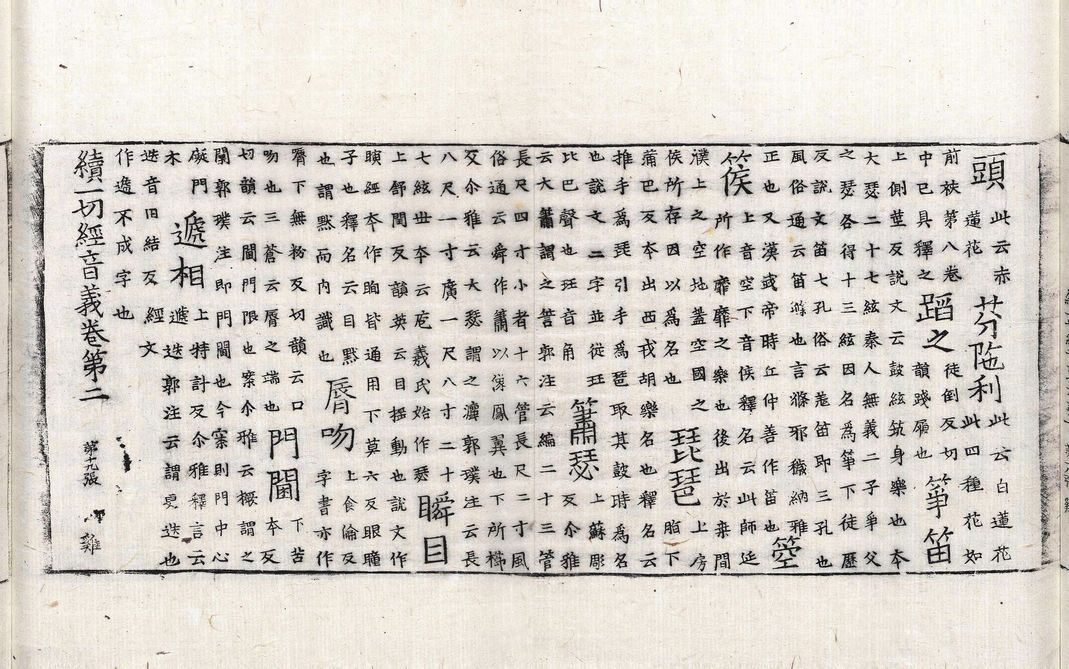 頭 此云赤蓮花 芬陁利 此云白蓮花此四種花如
前袟第八卷中已具釋之 蹈之 徒倒反切韻踐履也 箏笛
上側莖反說文云鼓絃筑身樂也本大瑟二十七絃秦人無義二子爭父
之瑟各得十三絃因名為箏下徒歷反說文笛七孔俗云羗笛即三孔也
風俗通云笛滌也言滌邪穢納雅正也又漢武帝時丘仲善作笛也 箜
篌 上音空下音侯釋名云此師延所作靡靡之樂也後出於桒間
濮上之空地蓋空國之侯所存因以為名也 琵琶 上房脂下
蒲巴反本出西戎胡樂名也釋名云推手為琵引手為琶取其鼓時為名
也說文二字並從珏比巴聲也珏音角 簫瑟 上蘇彫反尒雅
云大簫謂之䇾郭注云編二十三管長尺四寸小者十六管長尺二寸風
俗通云舜作簫以像鳳翼也下所櫛反尒雅云大瑟謂之灑郭璞注云長
八尺一寸廣一尺八寸二十七絃世本云庖羲氏始作瑟 瞬目
上舒閏反韻英云目搖動也說文作瞚經本作眴皆通用下莫六反眼瞳
子也釋名云目默也謂黙而內識也 脣吻 上食倫反字書亦作
下無粉反切韻云口吻也三蒼云脣之端也 門閫 下苦本反
切韻云閫門限也案尒雅云橛謂之閫郭璞注即門閫也今案則門中心
礙門木 遞相 上特計反尒雅釋言云遞迭郭注云謂更迭也
迭音旧結反經文作遆不成字也
續一切經音義卷第二 第十九張 雞